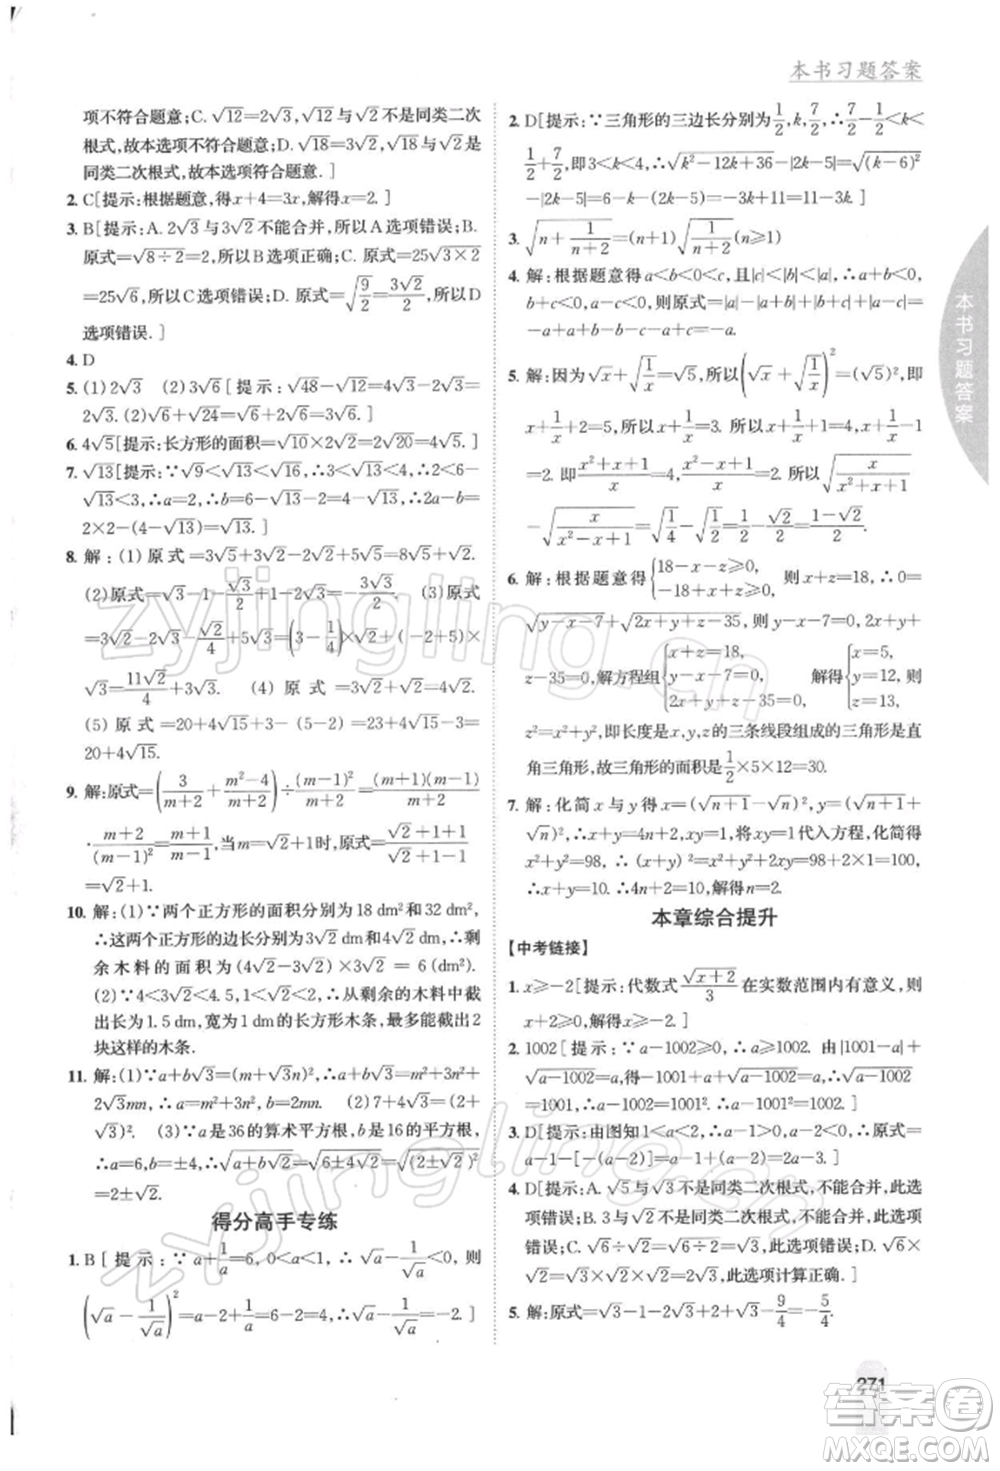 本书习题答案
项不符合题意;C. √12=2√3与√2不是同类二次
根式,故本选项不符合题意;D. √18=3√2与√2是
同类二次根式,故本选项符合题意. ]
2. C[提示:根据题意,得x+4=3x,解得x=2. ]
3. B[提示:A. 2√3与3√2不能合并,所以A选项错误;B.
原式=√(8÷2)=2,所以B选项正确;C. 原式=25√(3×2)
=25√6,所以C选项错误;D. 原式=√(9/2)=3√2/2,所以D
选项错误. ]
4. D
5. (1) 2√3 (2) 3√6 [提示:√48-√12=4√3-2√3=
2√3. (2)√6+√24=√6+2√6=3√6. ]
6. 4√5[提示:长方形的面积=√10×2√2=2√20=4√5. ]
7. √13[提示:∵√9<√13<√16,∴3<√13<4,∴2<6-
√13<3,∴a=2,∴b=6-√13-2=4-√13,∴2a-b=
2×2-(4-√13)=√13. ]
8. 解:(1)原式=3√5+3√2-2√2+5√5=8√5+√2.
(2)原式=2√3-√3/2+√3-√3=3√3/2. (3)原式
=3√3-2√2-√2/4-√3/4×5√3=(3-1/4)×√3+(-2+5)×
√3-11√2/4 (4)原式=4√6÷√2+4√6=4√3+4√6.
(5)原式=20+4√15+3-(5-2)=23+4√15-3=
20+4√15.
9. 解:原式=(3/(m+2)+(m²-4)/(m+2))÷(m-1)²/(m+2)=(m+1)(m-1)/(m+2)
·(m+2)/(m-1)²=(m+1)/(m-1),当m=√2+1时,原式=(√2+1+1)/(√2+1-1)
=√2+1.
10. 解:(1)∵两个正方形的面积分别为18 dm²和32 dm²,
∴这两个正方形的边长分别为3√2 dm和4√2 dm,∴剩
余木料的面积为(4√2-3√2)×3√2=6(dm²).
(2)∵4<3√2<4.5,1<√2<2,∴从剩余的木料中截
出长为1.5 dm,宽为1 dm的长方形木条,最多能截出2
块这样的木条.
11. 解:(1)∵a+b√3=(m+n√3)²,∴a+b√3=m²+3n²+
2√3mn,∴a=m²+3n²,b=2mn. (2)7+4√3=(2+
√3)². (3)∵a是36的算术平方根,b是16的平方根,
∴a=6,b=±4,∴√(a+b√2)=√(6±4√2)=√(2±√2)²
=2±√2.
得分高手专练
1. B[提示:∵a+1/a=6,0<a<1,∴√a-1/√a<0,则
(√a-1/√a)²=a-2+1/a=6-2=4,∴√a-1/√a=-2. ]
2. D[提示:∵三角形的三边长分别为1/2,k,7/2,∴7/2-1/2<k<
1/2+7/2,即3<k<4,∴√(k²-12k+36)-|2k-5|=√(k-6)²
-|2k-5|=6-k-(2k-5)=6-k-2k+5=11-3k. ]
3. √(n+1/(n+2))=(n+1)√(1/(n+2))(n≥1)
4. 解:根据题意得a<b<0<c,且|c|<|b|<|a|,∴a+b<0,
b+c<0,a-c<0,则原式=|a|-|a+b|+|c-a|+|b+c|=
-a+a+b+c-a-b-c=-a.
5. 解:因为√x+√(1/x)=√5,所以(√x+√(1/x))²=(√5)²,即
x+1/x+2=5,所以x+1/x=3. 所以x+1/x+1=4,x+1/x-1
=2. 即(x²+x+1)/x=4,(x²-x+1)/x=2. 所以√(x/(x²+x+1))
-√(x/(x²-x+1))=√(1/4)-√(1/2)=1/2-√2/2=(1-√2)/2.
6. 解:根据题意得{18-x-z≥0, -18+x+z≥0, 则x+z=18,∴0=
√(y-x-7)+√(x+y+z-35),则y-x-7=0,x+y+
z-35=0,解方程组{x+z=18, y-x-7=0, 2x+y+z=35, 解得{x=5, y=12, z=13, ∴x²+y²=
z²,即以长度为x,y,z的三条线段组成的三角形是直
角三角形,∴面积=1/2×5×12=30.
7. 解:化简x与y得x=(√(n+1)-√n)²,y=(√(n+1)+
√n)²,∴x+y=4n+2,xy=1,∴将xy=1代入方程,化简得
x²+y²=98, ∴(x+y)²=x²+y²+2xy=98+2×1=100,
∴x+y=10. ∴4n+2=10,解得n=2.
本章综合提升
【中考链接】
1. x≥-2[提示:代数式√(x+2)/3在实数范围内有意义,则
x+2≥0,解得x≥-2. ]
2. 1002[提示:∵a-1002≥0,∴a≥1002. 由|1001-a|+
√(a-1002)=a,得-1001+a+√(a-1002)=a,
∴√(a-1002)=1001,∴a-1002=1001²,∴a-1001²=1002. ]
3. D[提示:由图知1<a<2,∴a-1>0,a-2<0,∴原式=
a-1-[-(a-2)]=a-1+(a-2)=2a-3. ]
4. D[提示:A. √5与√3不是同类二次根式,不能合并,此选
项错误;B. 3与√2不是同类二次根式,不能合并,此选项
错误;C. √6÷√2=√(6÷2)=√3,此选项错误;D. √6×
√2=√(6×2)=√12=2√3,此选项计算正确. ]
5. 解:原式=√3-1-2√3+√3-9/4=-5/4.
本书习题答案
271
答案圈
MXQE.COM
zyjingling.cn
zyjingling.cn